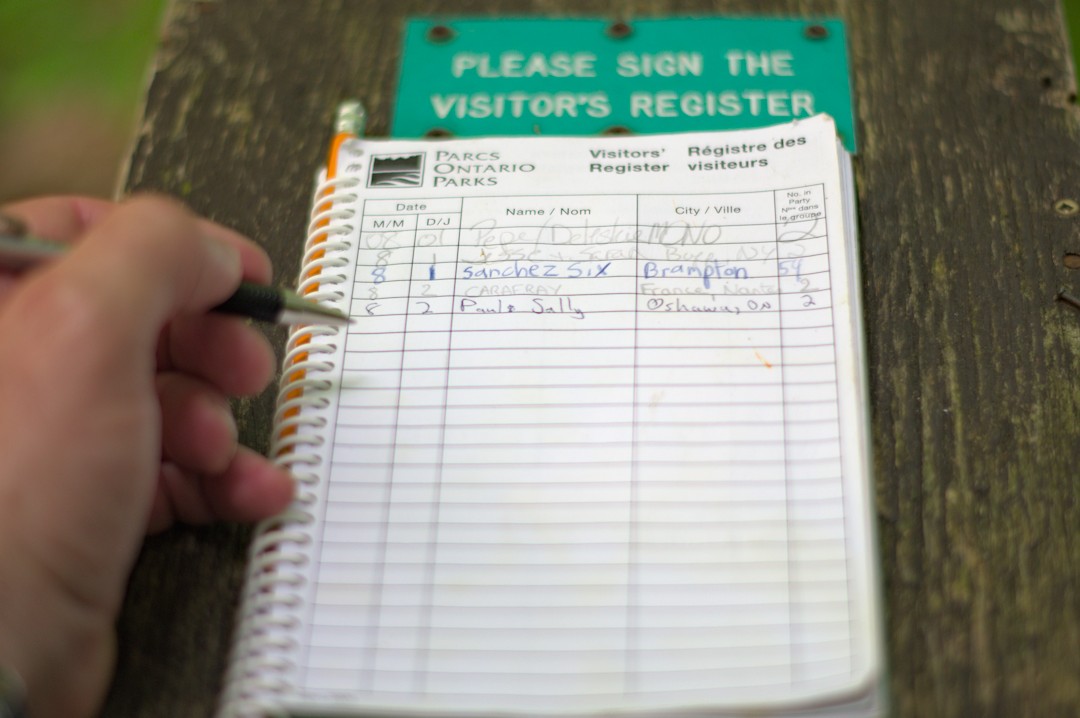 PLEASE SIGN THE
VISITOR'S REGISTER
PARCS
ONTARIO
PARKS
Visitors'
Register
Régistre des
visiteurs
Date
M/M D/J
Name / Nom
City / Ville
No. in
Party
Nbre dans
le groupe
08 01 MONO 2
8 1 Sarah NY 2
8 1 Sanchez Six Brampton
8 2 CARAFRAY France, Nantes 2
8 2 Paul & Sally Oshawa, ON 2